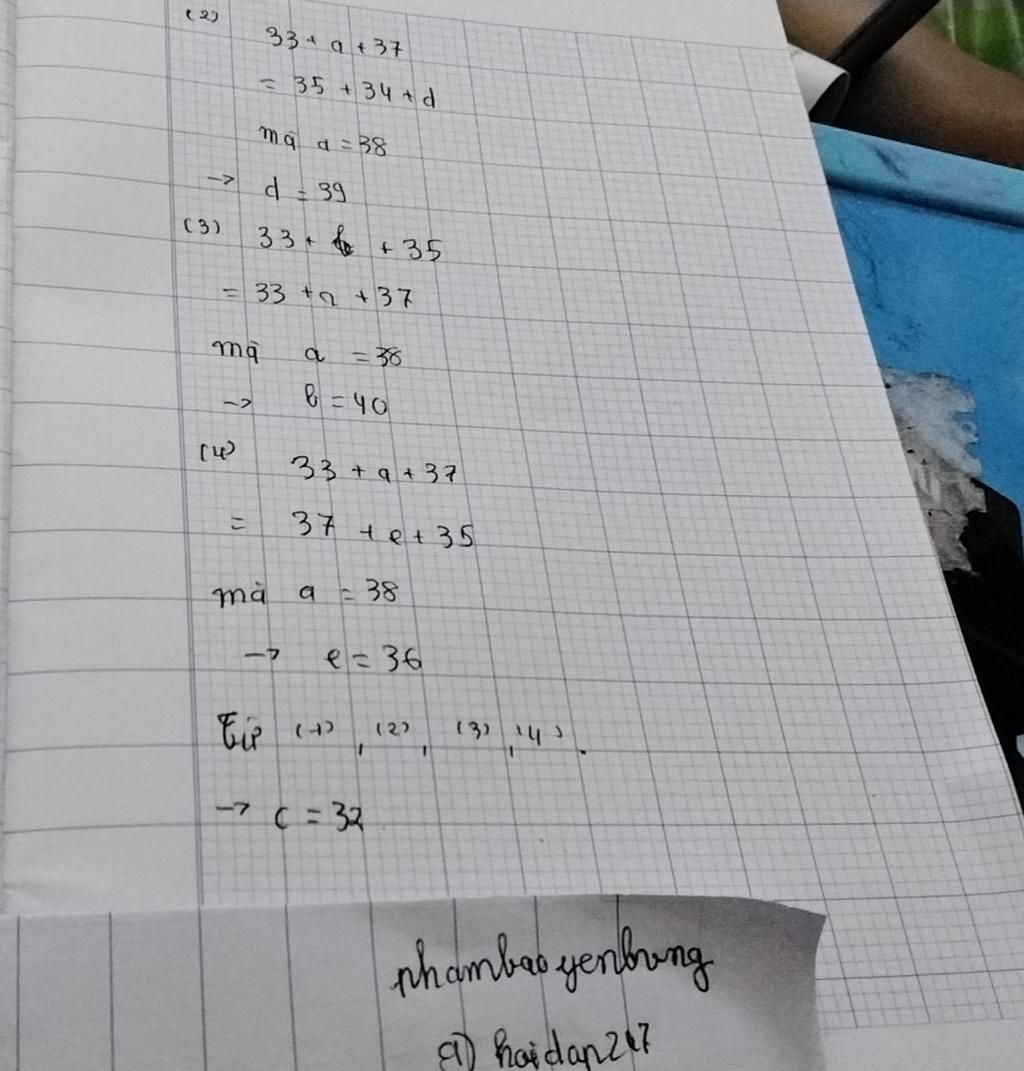 (2)
33 + a + 37
= 35 + 34 + d
mà a = 38
-> d = 39
(3) 33 + b + 35
= 33 + a + 37
mà a = 38
-> b = 40
(4) 33 + a + 37
= 37 + e + 35
mà a = 38
-> e = 36
Từ (1), (2), (3), (4).
-> c = 32
nhambaoyenbung
@) haidan247